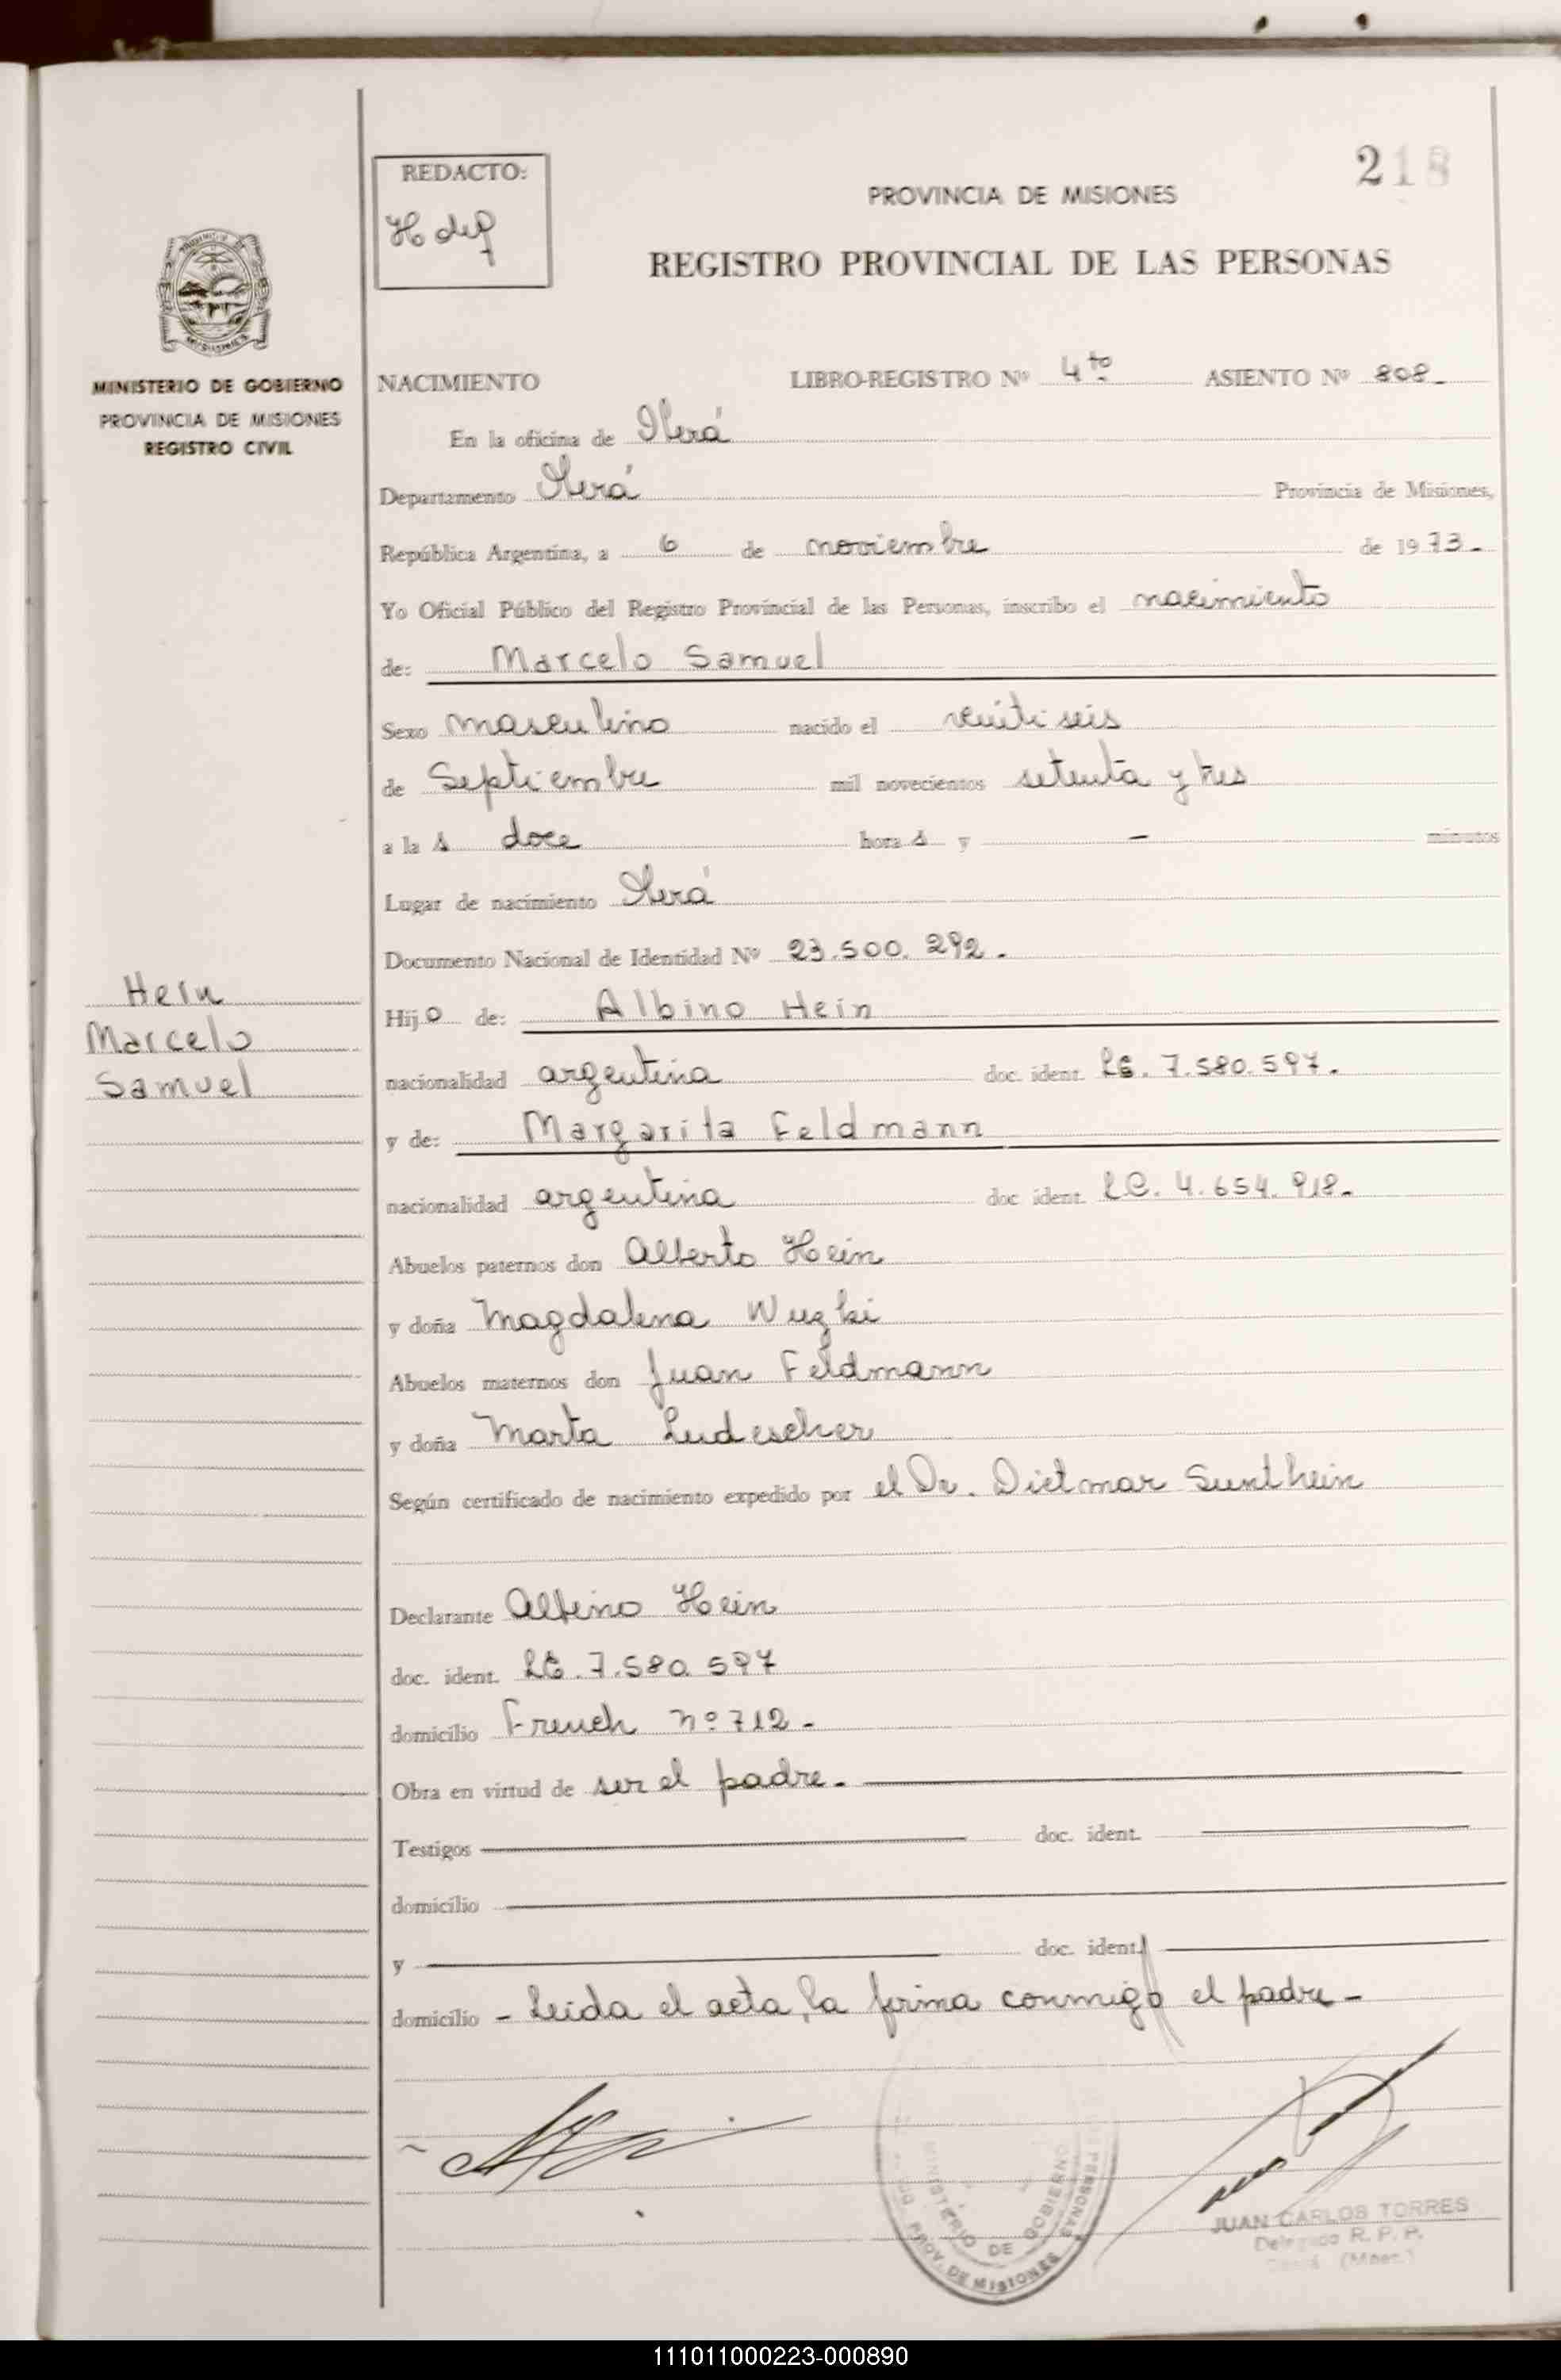 218
REDACTO:
PROVINCIA DE MISIONES
REGISTRO PROVINCIAL DE LAS PERSONAS
MINISTERIO DE GOBIERNO
PROVINCIA DE MISIONES
REGISTRO CIVIL
NACIMIENTO LIBRO-REGISTRO Nº 4to ASIENTO Nº 808-
En la oficina de Oberá
Departamento Oberá Provincia de Misiones,
República Argentina, a 6 de noviembre de 1973-
Yo Oficial Público del Registro Provincial de las Personas, inscribo el nacimiento
de: Marcelo Samuel
Sexo masculino nacido el veintiseis
de Septiembre mil novecientos setenta y tres
a la s doce hora s y - minutos
Lugar de nacimiento Oberá
Documento Nacional de Identidad Nº 23.500.292.
Hein
Marcelo
Samuel
Hijo de: Albino Hein
nacionalidad argentina doc. ident. LE. 7.580.597.
y de: Margarita Feldmann
nacionalidad argentina doc. ident. LC. 4.654.918.
Abuelos paternos don Alberto Hein
y doña Magdalena
Abuelos maternos don Juan Feldmann
y doña Marta Ludescher
Según certificado de nacimiento expedido por el Dr. Dietmar Sunthein
Declarante Albino Hein
doc. ident. LE. 7.580.597
domicilio French nº 712-
Obra en virtud de ser el padre.
Testigos doc. ident.
domicilio
y doc. ident.
domicilio - Leida el acta, la firma conmigo el padre-
PROV. DE MISIONES
MINISTERIO DE GOBIERNO
PERSONAS
JUAN CARLOS TORRES
Delegado R. P. P.
(Mnes.)
111011000223-000890